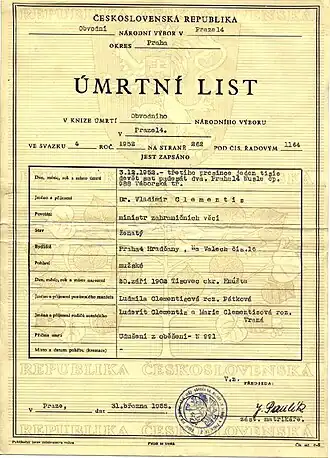 ČESKOSLOVENSKÁ REPUBLIKA
Obvodní NÁRODNÍ VÝBOR V Praze14
OKRES Praha
ÚMRTNÍ LIST
V KNIZE ÚMRTÍ Obvodního NÁRODNÍHO VÝBORU
V Praze14.
VE SVAZKU 4 ROČ. 1952 NA STRANĚ 262 POD ČÍS. ŘADOVÝM 1164
JEST ZAPSÁNO
Den, měsíc, rok a místo úmrtí
3.12.1952.- třetího prosince jeden tisíc
devět set padesát dva. Praha14 Nusle čp.
988 Táborská tř.
Jméno a příjmení
Dr. Vladimír Clementis
Povolání
ministr zahraničních věcí
Stav
ženatý
Bydliště
Praha4 Hradčany, Na Valech čís.16
Pohlaví
mužské
Den, měsíc, rok a místo narození
20.září 1902 Tisovec okr.
Jméno a příjmení pozůstalého manžela
Ludmila Clementisová roz. Pátková
Jména a příjmení rodičů zemřelého
Ludevít Clementis a Marie Clementisová roz.
Vraná
Příčina smrti
Udušení z oběšení- N 991
Místo a datum pohřbu (kremace)
-
REPUBLIKA ČESKOSLOVENSKÁ
V.z. PŘEDSEDA:
V Praze, dne 31.března 1955.
J. Paulík
zást. matrikáře.